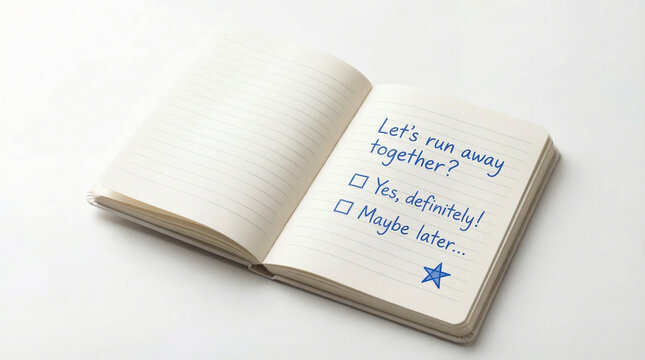 Let's run away
together?
Yes, definitely!
Maybe later...